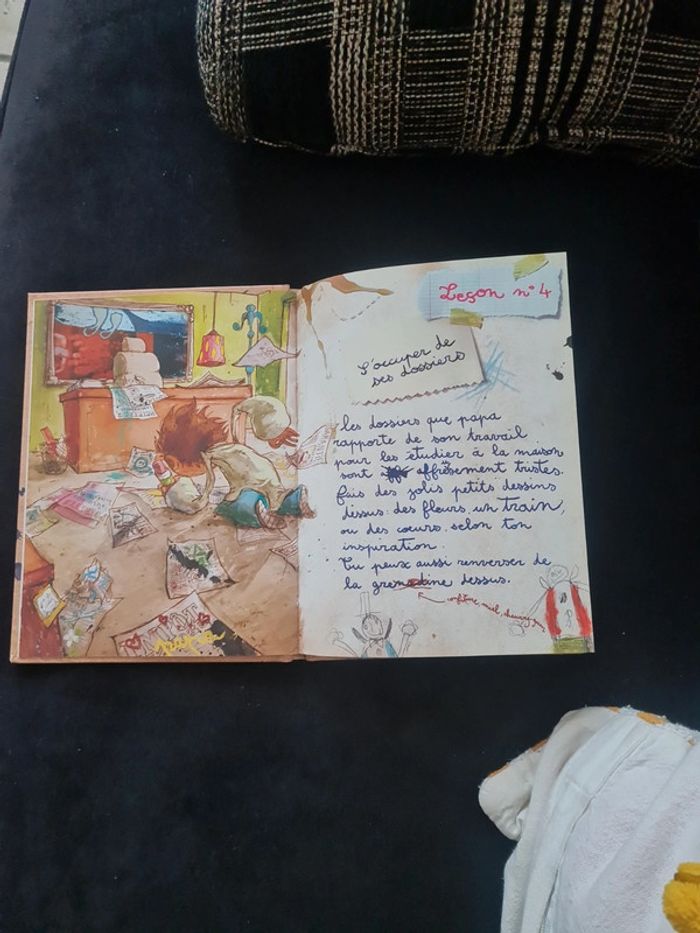 Leçon n°4
S'occuper de
ses dossiers
Les dossiers que papa
rapporte de son travail
pour les étudier à la maison
sont affreusement tristes.
Fais des jolis petits dessins
dessus : des fleurs, un train,
ou des cœurs, selon ton
inspiration.
Tu peux aussi renverser de
la grenadine dessus.
confiture, miel,